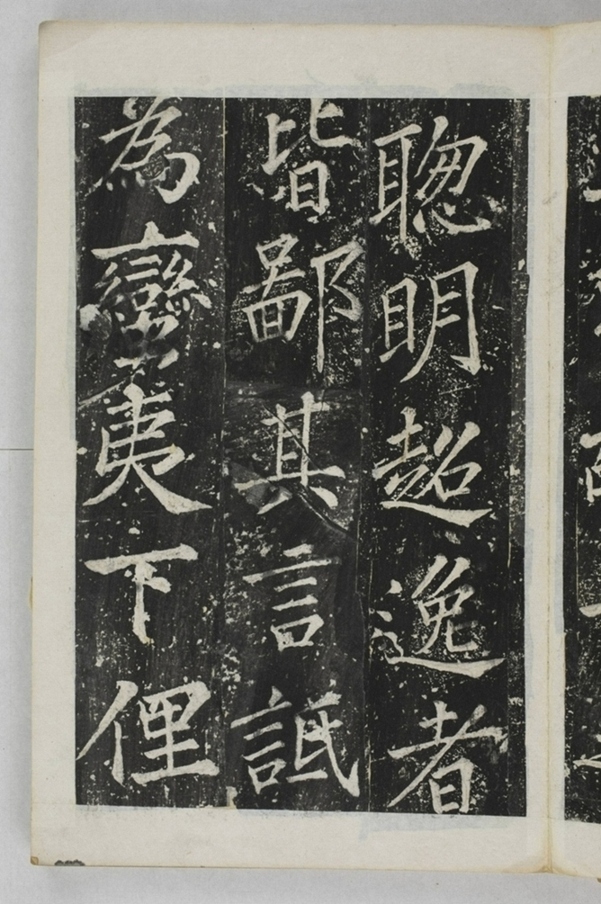 聦明超逸者
皆鄙其言詆
為蠻夷下俚